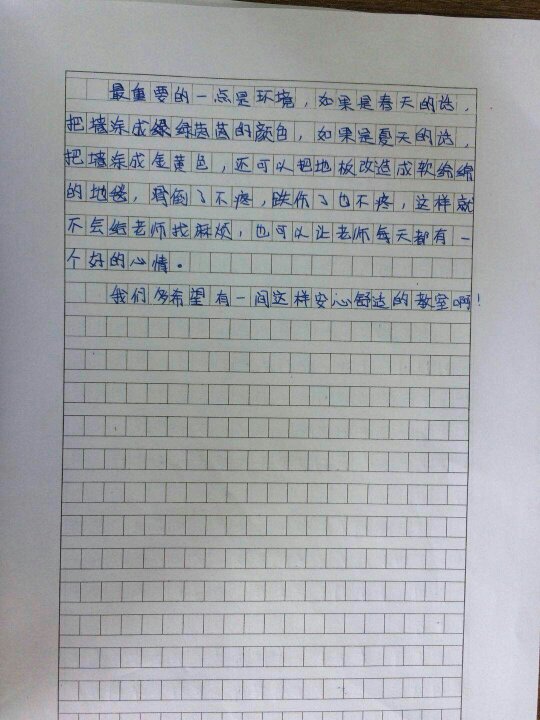 最重要的一点是环境，如果是春天的话，
把墙涂成绿绿茵茵的颜色，如果是夏天的话，
把墙涂成金黄色，还可以把地板改造成软绵绵
的地毯，滑倒了不疼，跌伤了也不疼，这样就
不会给老师找麻烦，也可以让老师每天都有一
个好的心情。
我们多希望有一间这样安心舒适的教室啊！